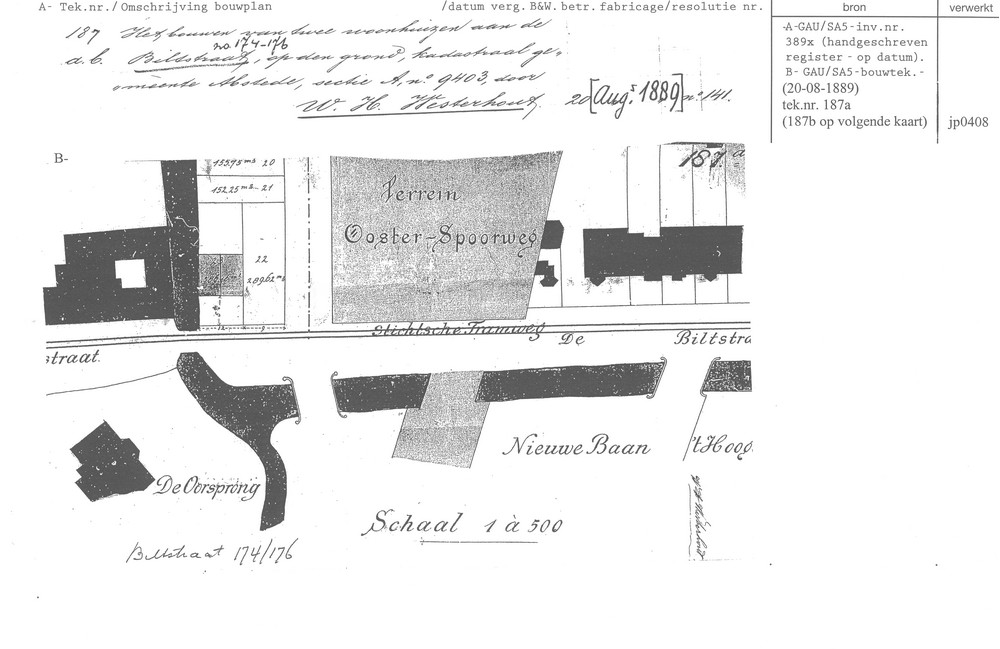 A- Tek.nr./Omschrijving bouwplan /datum verg. B&W. betr. fabricage/resolutie nr. bron verwerkt
187 Het bouwen van twee woonhuizen aan de
no 174-176
d. b. Biltstraat, op den grond, kadastraal ge-
meente Abstede, sectie A, no 9403, door
W. H. Westerhout. 20 [Augs 1889] no 141.
-A-GAU/SA5-inv.nr.
389x (handgeschreven
register - op datum).
B- GAU/SA5-bouwtek.-
(20-08-1889)
tek.nr. 187a
(187b op volgende kaart) jp0408
B-
153.95 m2 20
152.25 m2 - 21
22
289.62 m2
Terrein
Ooster-Spoorweg
187 a
Stichtsche Tramweg
straat. De Biltstra
De Oorsprong
Nieuwe Baan
't Hoog
Schaal 1 à 500
Biltstraat 174/176